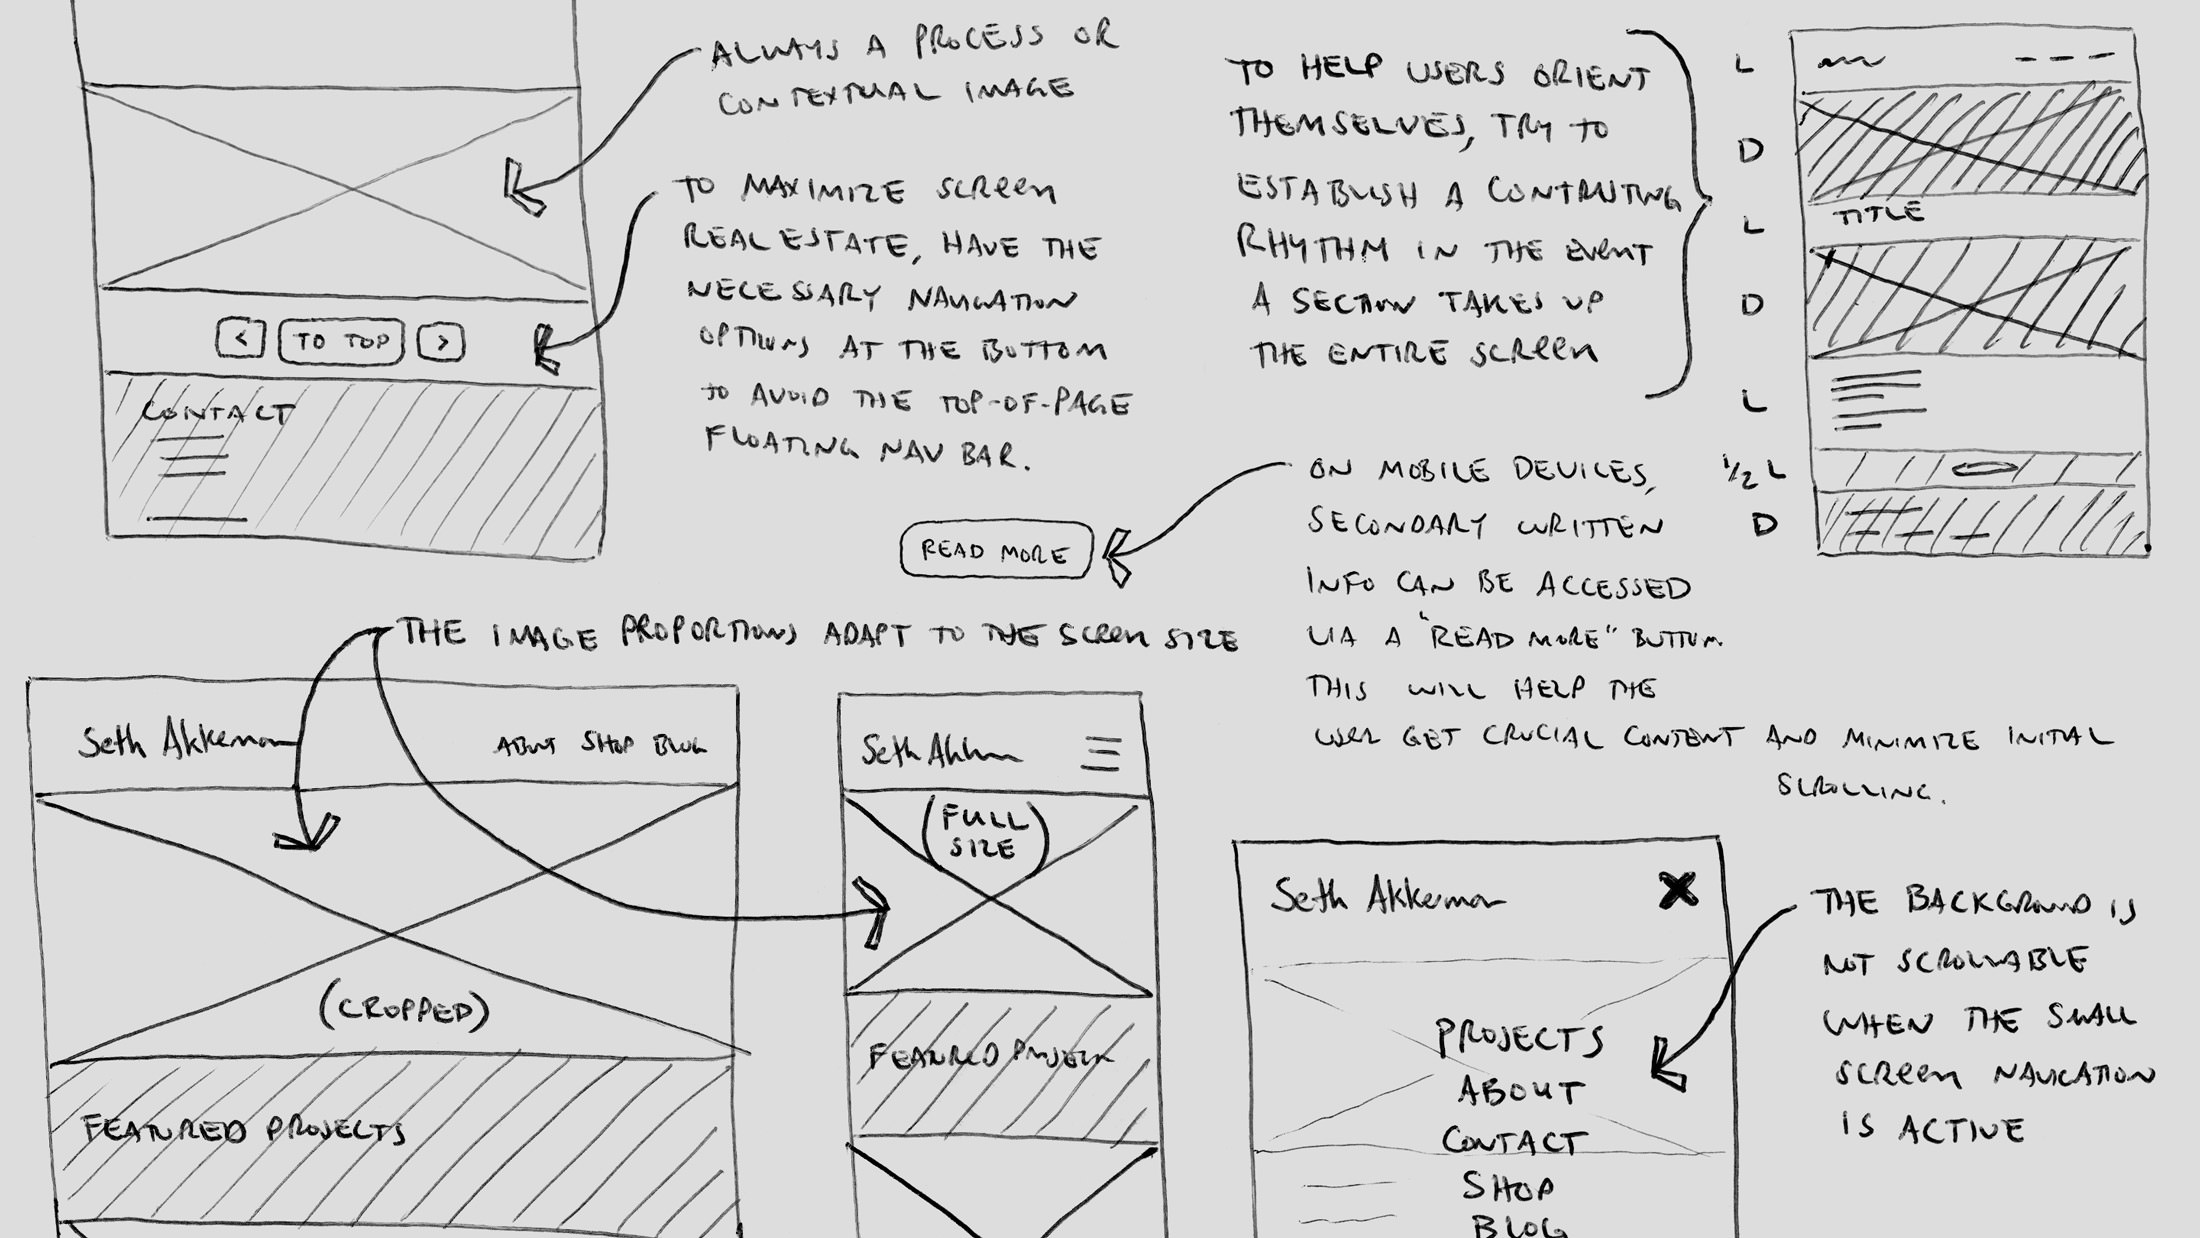 ALWAYS A PROCESS OR
CONTEXTUAL IMAGE
TO MAXIMIZE SCREEN
REAL ESTATE, HAVE THE
NECESSARY NAVIGATION
OPTIONS AT THE BOTTOM
TO AVOID THE TOP-OF-PAGE
FLOATING NAV BAR.
< TO TOP >
CONTACT
TO HELP USERS ORIENT
THEMSELVES, TRY TO
ESTABLISH A CONTRASTING
RHYTHM IN THE EVENT
A SECTION TAKES UP
THE ENTIRE SCREEN
L
D
L
D
L
1/2 L
D
TITLE
ON MOBILE DEVICES,
SECONDARY WRITTEN
INFO CAN BE ACCESSED
VIA A "READ MORE" BUTTON.
THIS WILL HELP THE
USER GET CRUCIAL CONTENT AND MINIMIZE INITIAL
SCROLLING.
READ MORE
THE IMAGE PROPORTIONS ADAPT TO THE SCREEN SIZE
Seth Akkerman
ABOUT SHOP BLOG
(CROPPED)
FEATURED PROJECTS
Seth Akkerman
(FULL
SIZE)
FEATURED PROJECTS
Seth Akkerman X
PROJECTS
ABOUT
CONTACT
SHOP
BLOG
THE BACKGROUND IS
NOT SCROLLABLE
WHEN THE SMALL
SCREEN NAVIGATION
IS ACTIVE